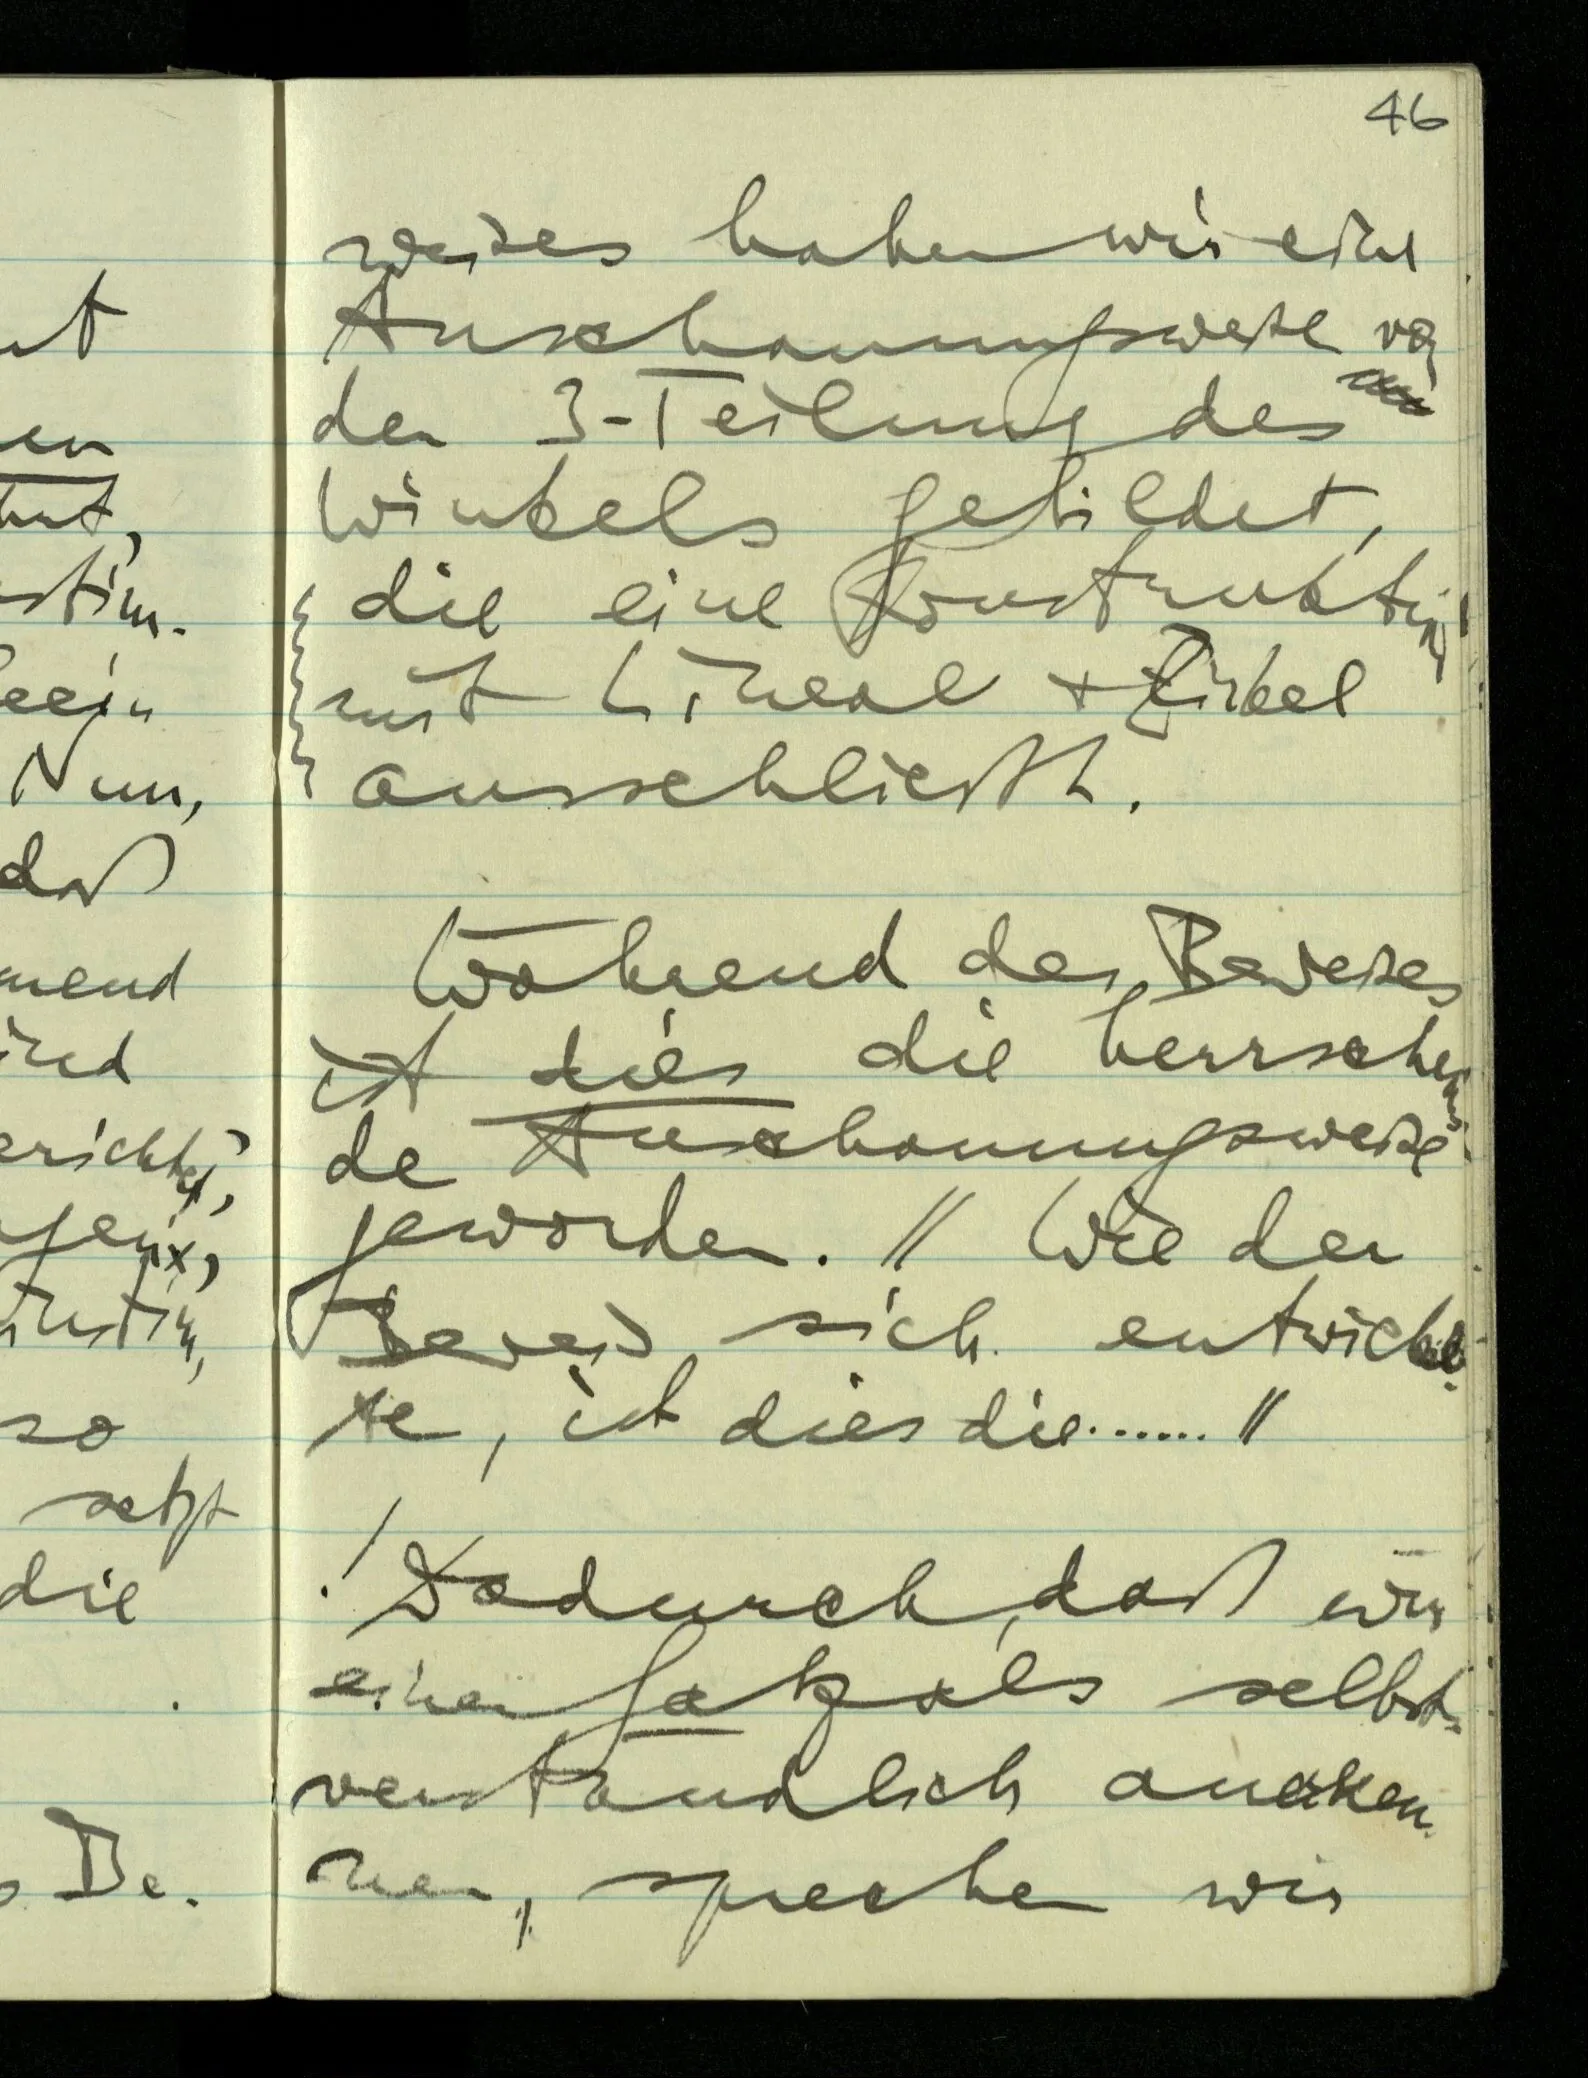 46
ut
en
hnt,
stim-
Nun,
daß
mend
ind
so
setzt
die
De-
weises haben wir eine
Anschauungsweise von
der 3-Teilung des
Winkels gebildet,
die eine Konstruktion
mit Lineal + Zirkel
ausschließt.
Während des Beweises
ist dies die herrschen-
de Anschauungsweise
geworden. // Wie der
Beweis sich entwickel-
te, ist dies die....... //
Dadurch, daß wir
einen Satz als selbst-
verständlich anerken-
nen, sprechen wir